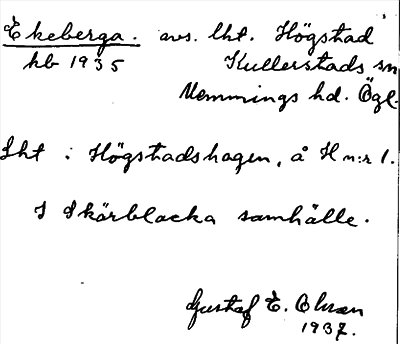 Ekeberga. avs. lht. Högstad
hb 1935 Kullerstads sn
Memmings hd. Ögl.
Lht i Högstadshagen, å H n:r 1.
I Skärblacka samhälle.
Gustaf E. Olson
1937.